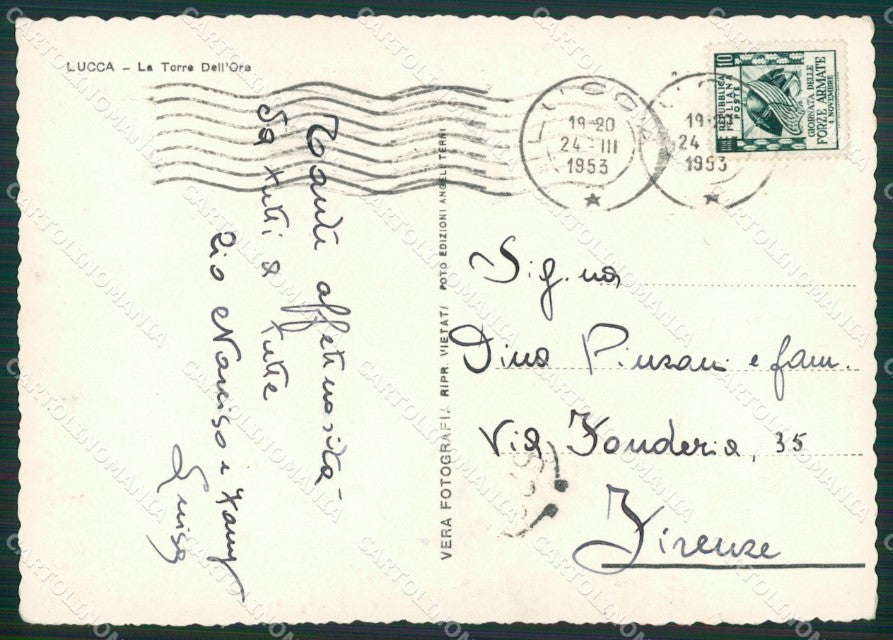 LUCCA - La Torre Dell'Ore
LUCCA
19-20
24-III
1953
LUCCA
19-20
24
1953
10
REPUBBLICA
ITALIANA
POSTE
GIORNATA DELLE
FORZE ARMATE
4 NOVEMBRE
Tante affettuosità
da tutti a tutte
Zio Narciso e
Luisa
VERA FOTOGRAFIA RIPR. VIETATA FOTO EDIZIONI ANGELI TERNI
Sig.na
Dina Pinzani e fam.
Via Fonderia, 35
Firenze
CARTOLINOMANIA